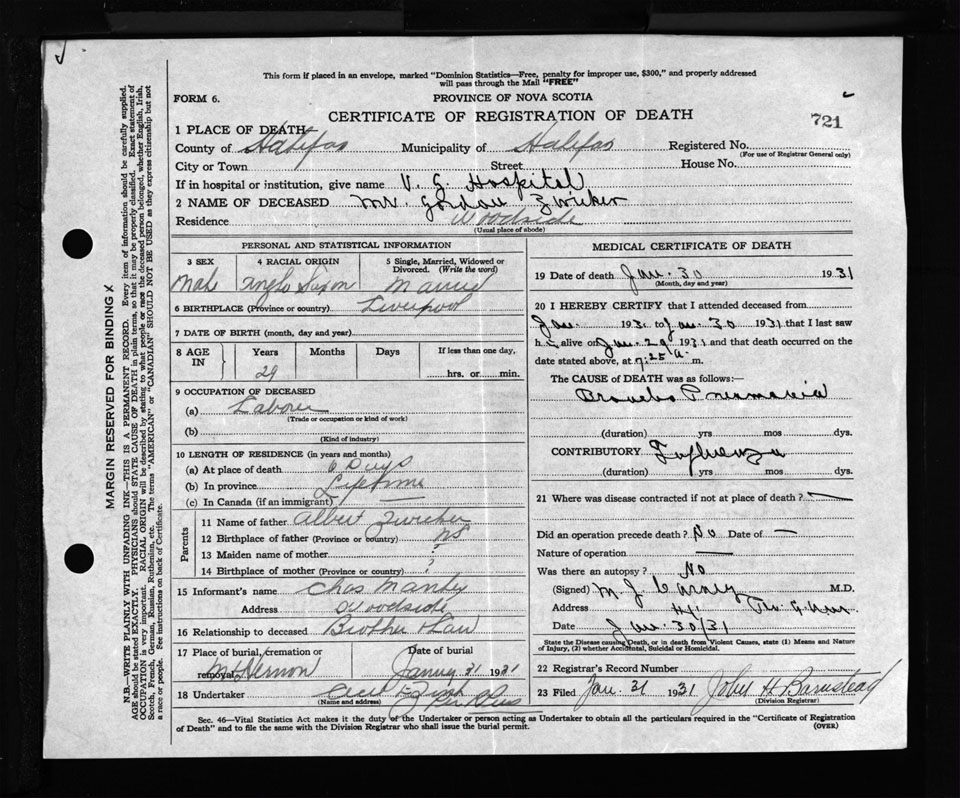 This form if placed in an envelope, marked "Dominion Statistics—Free, penalty for improper use, $300," and properly addressed
will pass through the Mail "FREE"
FORM 6.
PROVINCE OF NOVA SCOTIA
CERTIFICATE OF REGISTRATION OF DEATH
721
1 PLACE OF DEATH
County of Halifax Municipality of Halifax Registered No.
(For use of Registrar General only)
City or Town Street House No.
If in hospital or institution, give name V. G. Hospital
2 NAME OF DECEASED Mr. Gordon Zwicker
Residence Woodside
(Usual place of abode)
PERSONAL AND STATISTICAL INFORMATION
3 SEX 4 RACIAL ORIGIN 5 Single, Married, Widowed or
Divorced. (Write the word)
Male Anglo Saxon Married
6 BIRTHPLACE (Province or country) Liverpool
7 DATE OF BIRTH (month, day and year)
8 AGE IN Years Months Days If less than one day,
29 hrs. or min.
9 OCCUPATION OF DECEASED
(a) Laborer
(Trade or occupation or kind of work)
(b)
(Kind of industry)
10 LENGTH OF RESIDENCE (in years and months)
(a) At place of death 6 Days
(b) In province Lifetime
(c) In Canada (if an immigrant) —
Parents
11 Name of father Albert Zwicker
12 Birthplace of father (Province or country) NS
13 Maiden name of mother ?
14 Birthplace of mother (Province or country) ?
15 Informant's name Chas Manley
Address Woodside
16 Relationship to deceased Brother Law
17 Place of burial, cremation or
removal Mt Hernon
Date of burial
January 31 1931
18 Undertaker
(Name and address)
MEDICAL CERTIFICATE OF DEATH
19 Date of death Jan. 30 1931
(Month, day and year)
20 I HEREBY CERTIFY that I attended deceased from
Jan. 1931 to Jan. 30 1931 that I last saw
h im alive on Jan. 29 1931 and that death occurred on the
date stated above, at 7.25 A. m.
The CAUSE of DEATH was as follows:—
Broncho Pneumonia
(duration) yrs mos dys.
CONTRIBUTORY Influenza
(duration) yrs mos dys.
21 Where was disease contracted if not at place of death? —
Did an operation precede death? No Date of —
Nature of operation —
Was there an autopsy? No
(Signed) M. J. Carney M.D.
Address
Date Jan. 30/31
State the Disease causing Death, or in death from Violent Causes, state (1) Means and Nature
of Injury, (2) whether Accidental, Suicidal or Homicidal.
22 Registrar's Record Number
23 Filed Jan. 31 1931 John H. Barnstead
(Division Registrar)
Sec. 46—Vital Statistics Act makes it the duty of the Undertaker or person acting as Undertaker to obtain all the particulars required in the "Certificate of Registration
of Death" and to file the same with the Division Registrar who shall issue the burial permit. (OVER)
MARGIN RESERVED FOR BINDING X
N.B.—WRITE PLAINLY WITH UNFADING INK—THIS IS A PERMANENT RECORD. Every item of information should be carefully supplied.
AGE should be stated EXACTLY. PHYSICIANS should STATE CAUSE OF DEATH in plain terms, so that it may be properly classified. Exact statement of
OCCUPATION is very important. RACIAL ORIGIN will be described by stating to what people or race the deceased person belonged, whether English, Irish,
Scotch, French, German, Russian, Ruthenian, etc. The terms "AMERICAN" or "CANADIAN" SHOULD NOT BE USED as they express citizenship but not
a race or people. See instructions on back of Certificate.